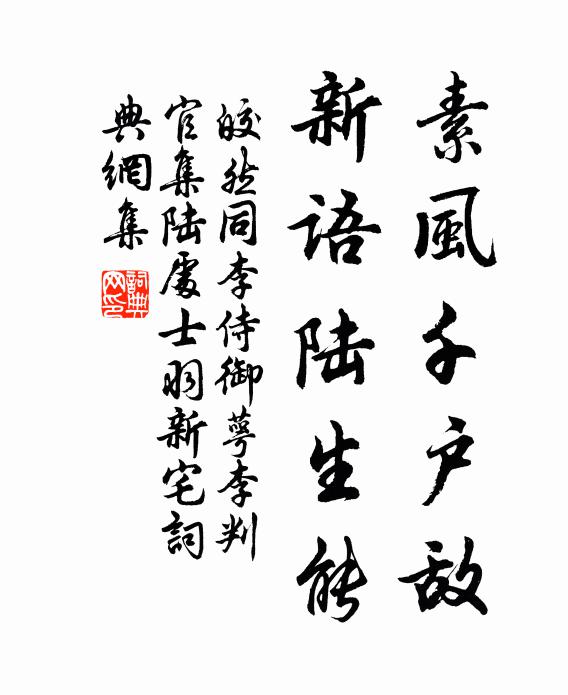 素風千户敵
新語陆生能
皎然同李侍御萼李判
官集陆處士羽新宅詞
典網集
詞典網印